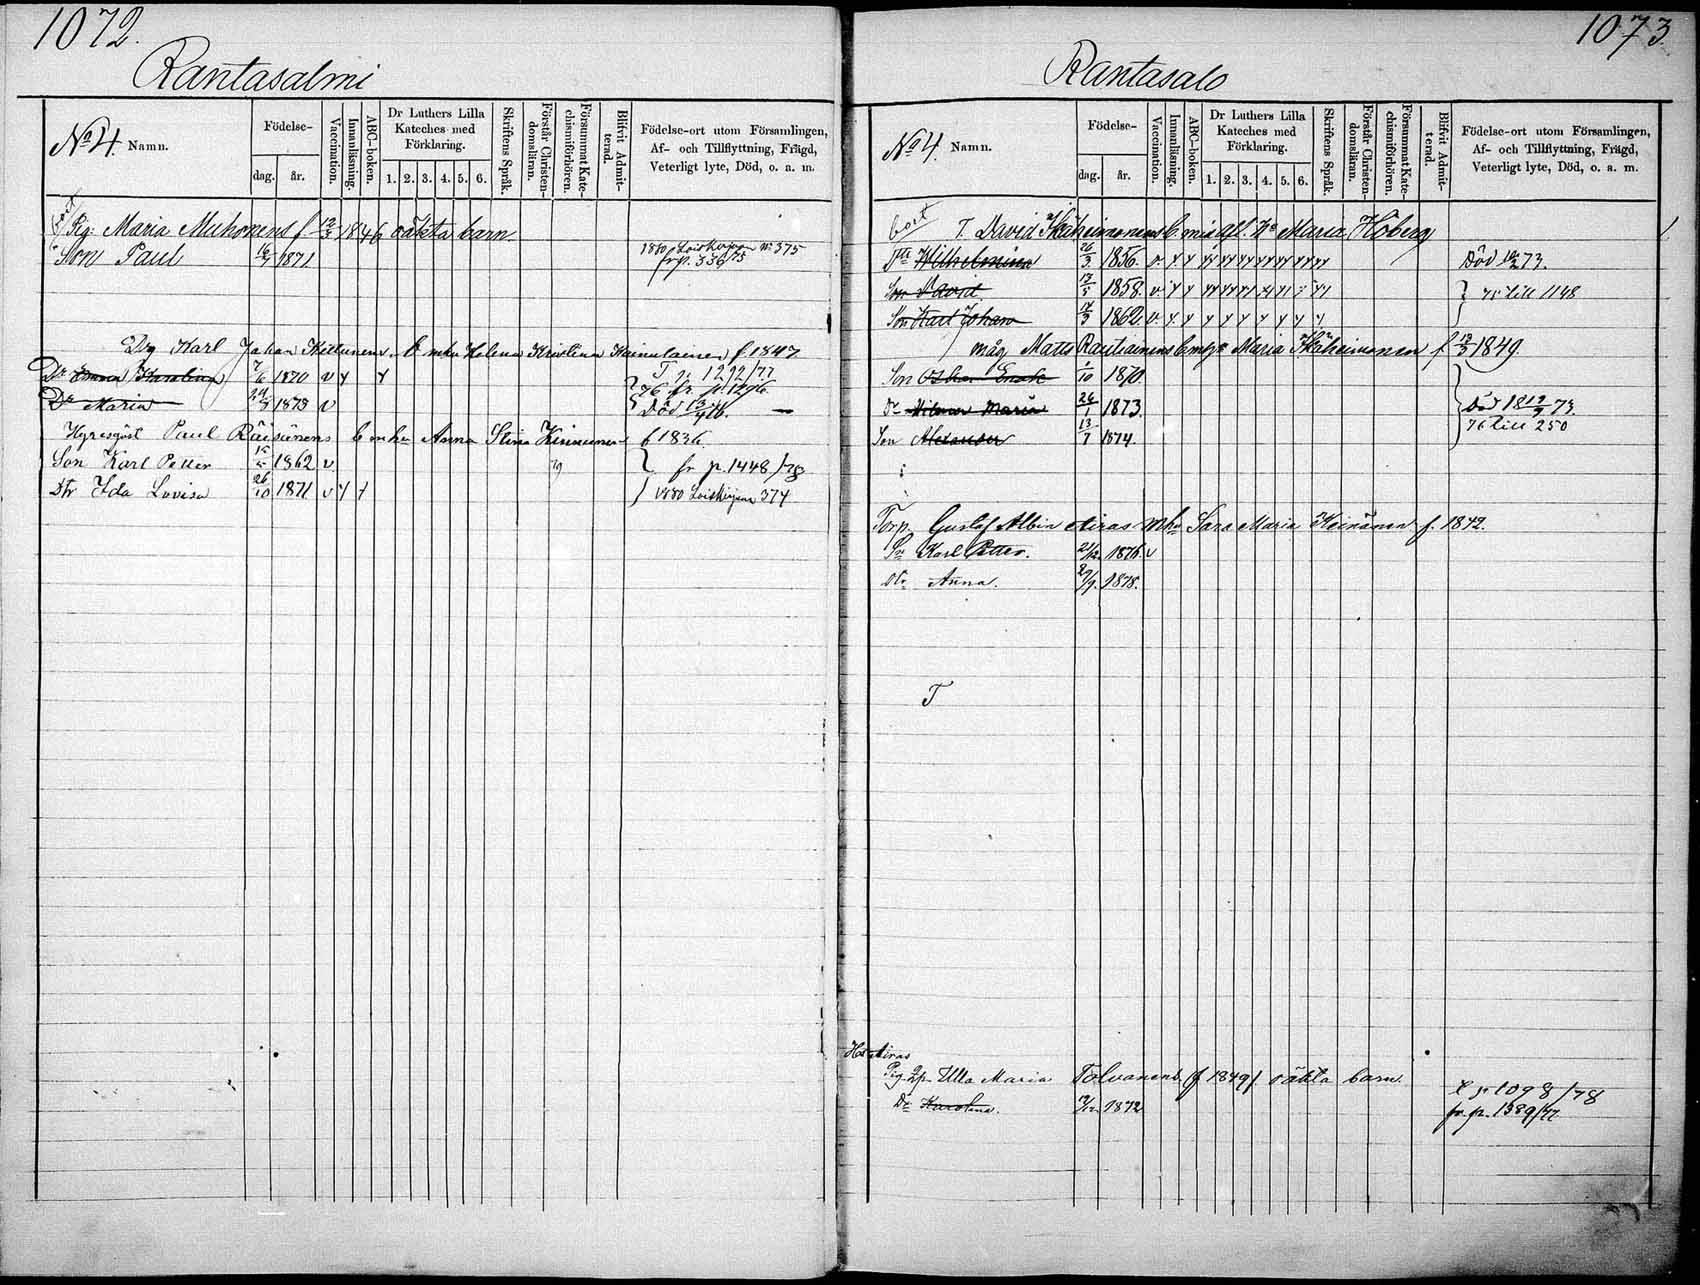 1072.
Rantasalmi
No 4. Namn.
Födelse-
dag. år.
Vaccination.
Innanläsning.
ABC-boken.
Dr Luthers Lilla Kateches med Förklaring.
1. 2. 3. 4. 5. 6.
Skriftens Språk.
Förstår Christendomsläran.
Försummat Katechismiförhören.
Blifvit Admitterad.
Födelse-ort utom Församlingen, Af- och Tillflyttning, Frägd, Veterligt lyte, Död, o. a. m.
bort
Pig. Maria Muhonens f 12/3 1846 oäkta barn.
Son Paul 16/7 1871 1880 375
frp. 336/75
Karl Johan Kettunens b mhu Helena Kristina Kainulainen f. 1847
Dr Emma Karolina 7/6 1870 v y y T p. 1292/77
Dr Maria 1873 v 76 fr p. 1296.
Död
Hyresgäst Paul Räisänens b m hu Anna Stina Kinnunen f 1836
Son Karl Petter 1862 v fr p. 1448/78
Dtr Ida Lovisa 26/10 1871 v y 1880 374
1073.
Rantasalo
No 4. Namn.
Födelse-
dag. år.
Vaccination.
Innanläsning.
ABC-boken.
Dr Luthers Lilla Kateches med Förklaring.
1. 2. 3. 4. 5. 6.
Skriftens Språk.
Förstår Christendomsläran.
Försummat Katechismiförhören.
Blifvit Admitterad.
Födelse-ort utom Församlingen, Af- och Tillflyttning, Frägd, Veterligt lyte, Död, o. a. m.
bort
T. David Ikäheimonens b. m afl. Maria Höberg
Wilhelmina 26/3 1856. v. Död 73.
Son David 17/5 1858. v. 75 till 1148
Son Karl Johan 14/3 1862. v.
måg Matts Rautiainens b m Maria Ikäheimonen f 1849.
Son Oskar Enok 1/10 1870.
Dr Hilma Maria 26/1 1873. Död 18 73.
Son Alexander 13/7 1874. 76 till 250
Torp. Gustaf Albin Airas mhu Sara Maria Heinänen f. 1842.
Sn Karl Petter. 21/12. 1876. v
Dtr Anna. 29/9. 1878.
T
Hos Airas
Pig Ulla Maria Tolvanens (f 1849) oäkta barn.
Dr Karolina. 1872
p 1098/78
fr. p. 1389/77